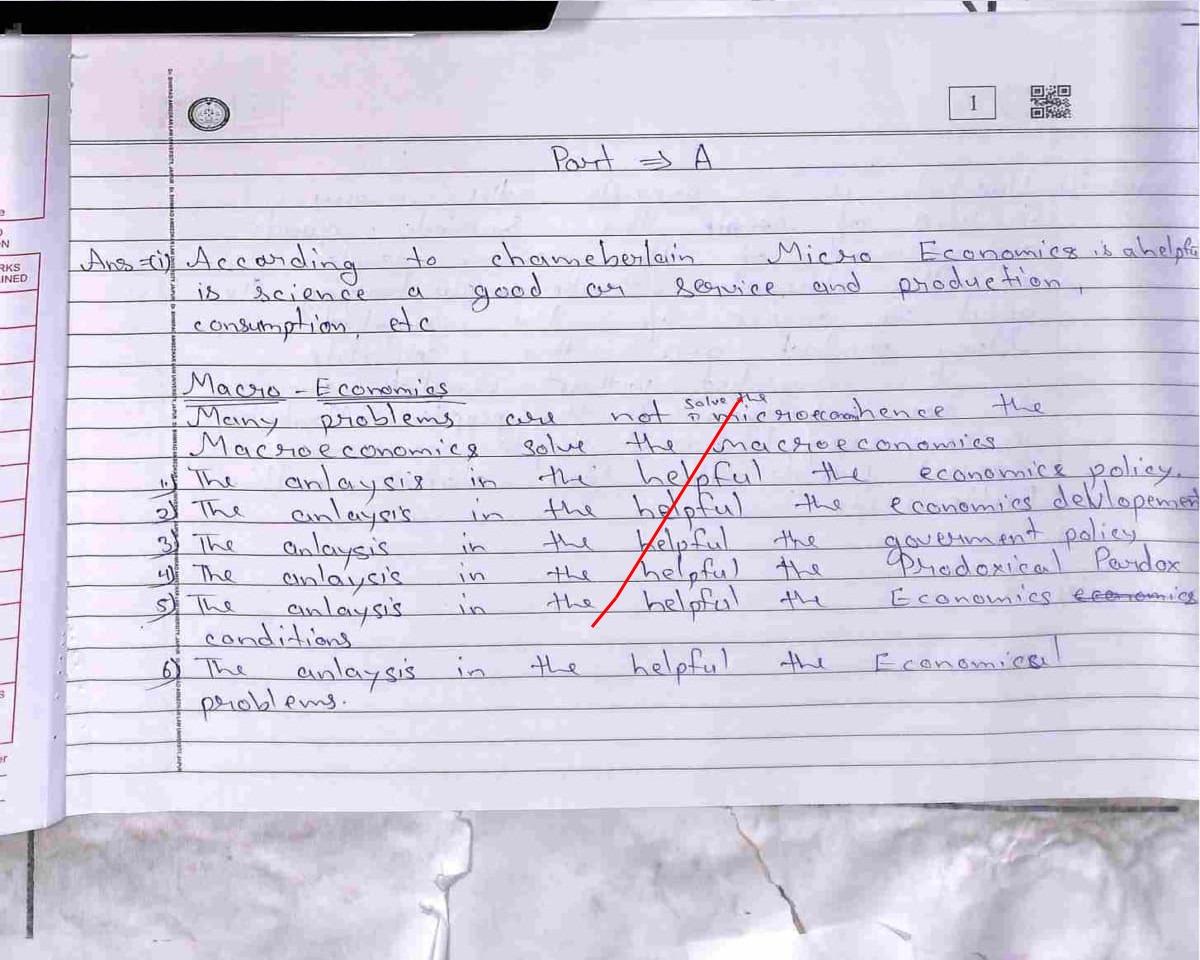 1
Part ⇒ A
Ans=(i) According to chameberlain Micro Economics is a helpfu
is science a good or service and production,
consumption, etc
Macro - Economics
Many problems are not solve the microeconomi hence the
Macroeconomics solve the macroeconomics
1) The anlaysis in the helpful the economics policy.
2) The anlaysis in the helpful the economics devlopemen
3) The anlaysis in the helpful the goverment policy
4) The anlaysis in the helpful the Prodoxical Pardox
5) The anlaysis in the helpful the Economics economics
conditions
6) The anlaysis in the helpful the Economical
problems.
RKS
INED